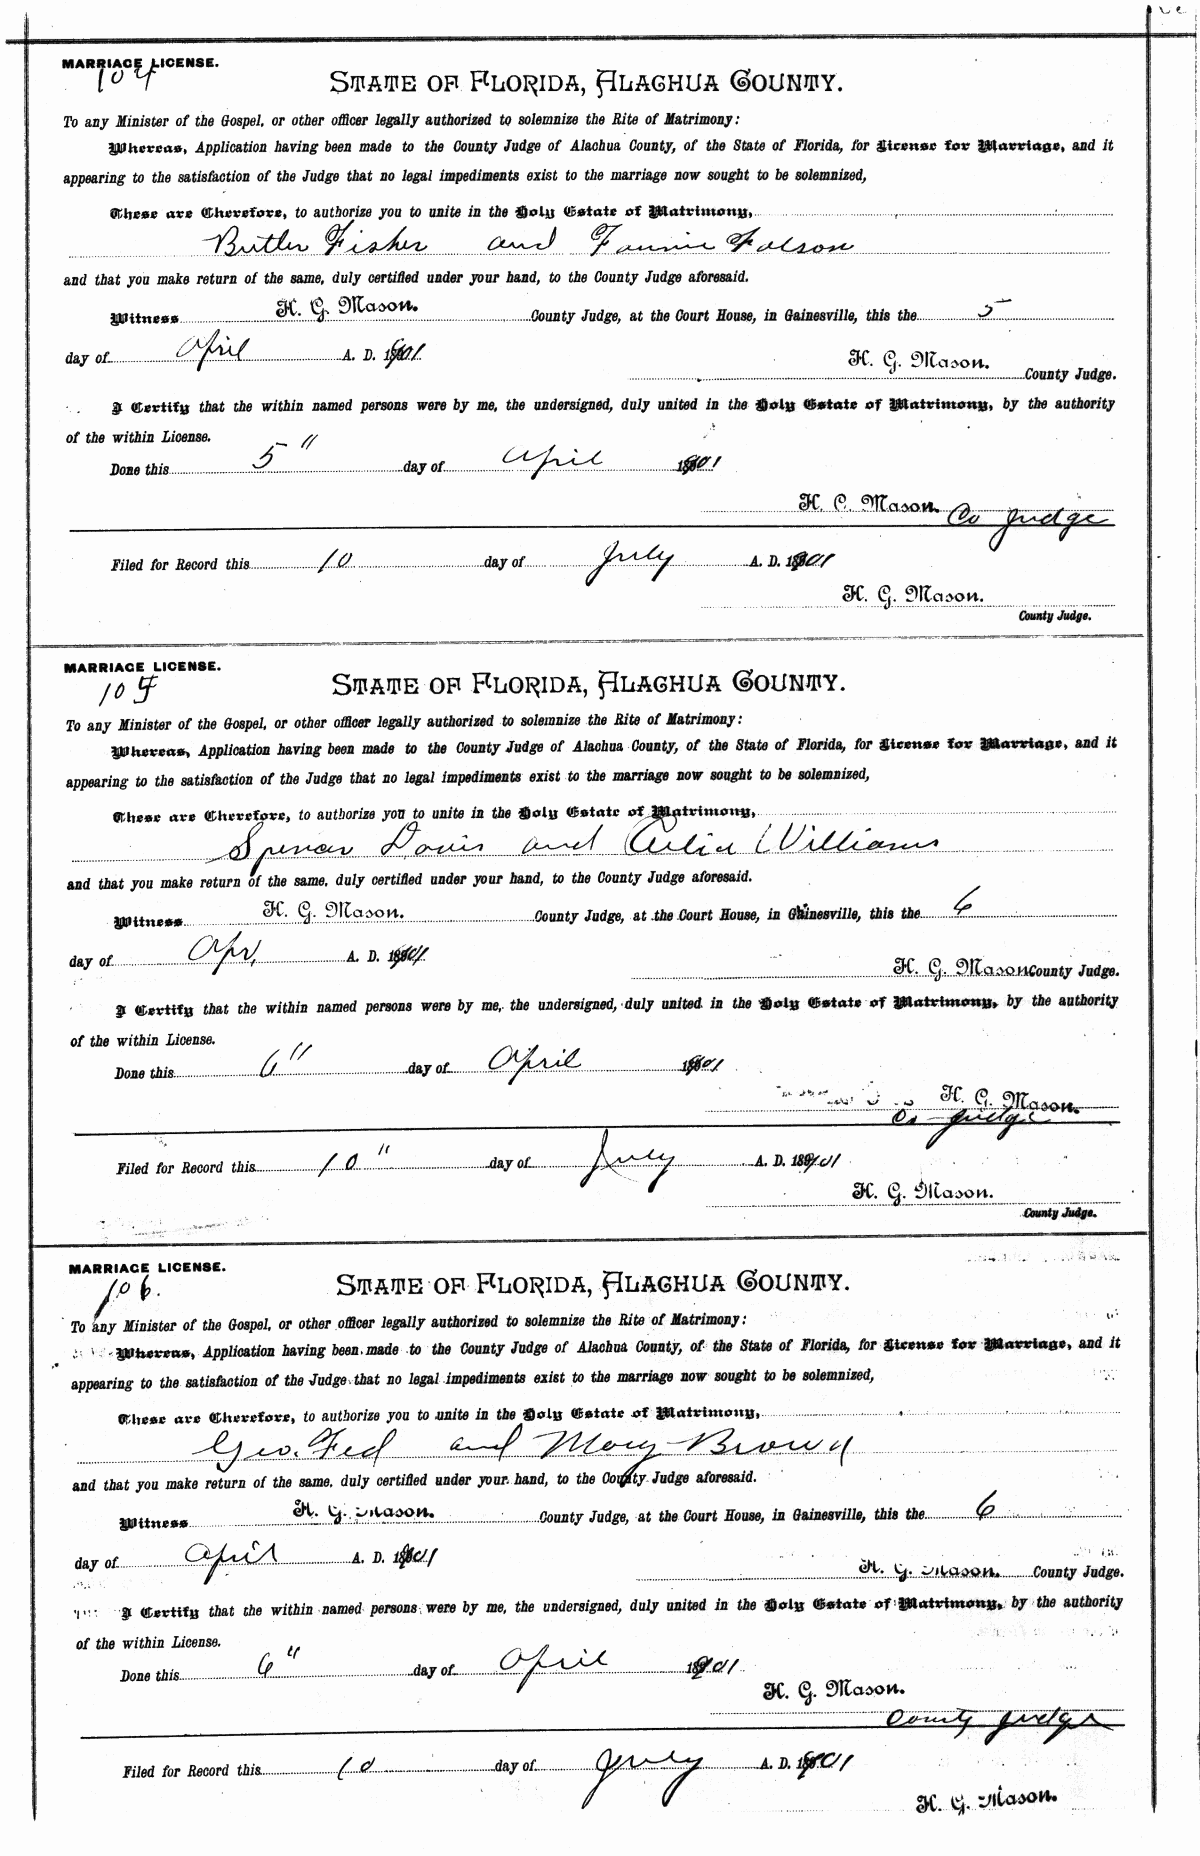 MARRIAGE LICENSE.
104
STATE OF FLORIDA, ALACHUA COUNTY.
To any Minister of the Gospel, or other officer legally authorized to solemnize the Rite of Matrimony:
Whereas, Application having been made to the County Judge of Alachua County, of the State of Florida, for License for Marriage, and it
appearing to the satisfaction of the Judge that no legal impediments exist to the marriage now sought to be solemnized,
These are Therefore, to authorize you to unite in the Holy Estate of Matrimony,
Butler Fisher and Fannie Folson
and that you make return of the same, duly certified under your hand, to the County Judge aforesaid.
Witness H. G. Mason. County Judge, at the Court House, in Gainesville, this the 5
day of April A. D. 1901 H. G. Mason. County Judge.
I Certify that the within named persons were by me, the undersigned, duly united in the Holy Estate of Matrimony, by the authority
of the within License.
Done this 5" day of April 1901
H. C. Mason. Co Judge
Filed for Record this 10 day of July A. D. 1901
H. G. Mason.
County Judge.
MARRIAGE LICENSE.
105
STATE OF FLORIDA, ALACHUA COUNTY.
To any Minister of the Gospel, or other officer legally authorized to solemnize the Rite of Matrimony:
Whereas, Application having been made to the County Judge of Alachua County, of the State of Florida, for License for Marriage, and it
appearing to the satisfaction of the Judge that no legal impediments exist to the marriage now sought to be solemnized,
These are Therefore, to authorize you to unite in the Holy Estate of Matrimony,
Spencer Davis and Celia Williams
and that you make return of the same, duly certified under your hand, to the County Judge aforesaid.
Witness H. G. Mason. County Judge, at the Court House, in Gainesville, this the 6
day of Apr, A. D. 1901 H. G. Mason County Judge.
I Certify that the within named persons were by me, the undersigned, duly united in the Holy Estate of Matrimony, by the authority
of the within License.
Done this 6" day of April 1901
H. G. Mason.
Co Judge
Filed for Record this 10" day of July A. D. 1901
H. G. Mason.
County Judge.
MARRIAGE LICENSE.
106.
STATE OF FLORIDA, ALACHUA COUNTY.
To any Minister of the Gospel, or other officer legally authorized to solemnize the Rite of Matrimony:
Whereas, Application having been made to the County Judge of Alachua County, of the State of Florida, for License for Marriage, and it
appearing to the satisfaction of the Judge that no legal impediments exist to the marriage now sought to be solemnized,
These are Therefore, to authorize you to unite in the Holy Estate of Matrimony,
Geo. Fed and Mary Brown
and that you make return of the same, duly certified under your hand, to the County Judge aforesaid.
Witness H. G. Mason. County Judge, at the Court House, in Gainesville, this the 6
day of April A. D. 1901 H. G. Mason. County Judge.
I Certify that the within named persons were by me, the undersigned, duly united in the Holy Estate of Matrimony, by the authority
of the within License.
Done this 6" day of April 1901
H. G. Mason.
County Judge
Filed for Record this 10 day of July A. D. 1901
H. G. Mason.